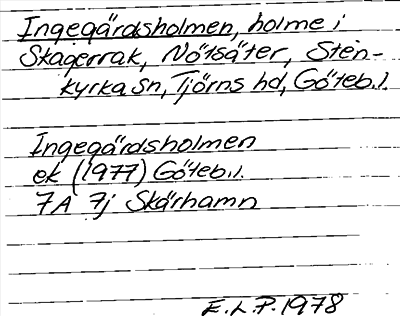 Ingegärdsholmen, holme i
Skagerrak, Nötsäter, Sten-
kyrka sn, Tjörns hd, Göteb.l.
Ingegärdsholmen
ek (1977) Göteb.l.
7A 7j Skärhamn
E.L.P. 1978